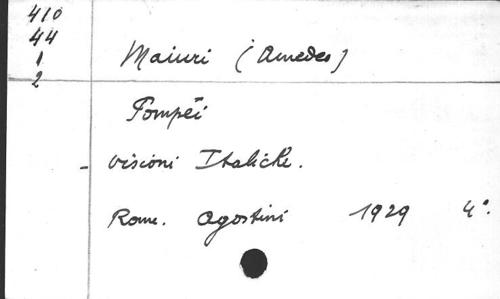 410
44
1
2
Maiuri (Amedeo)
Pompéi
- visioni Italiche.
Rome. Agostini 1929 4°.